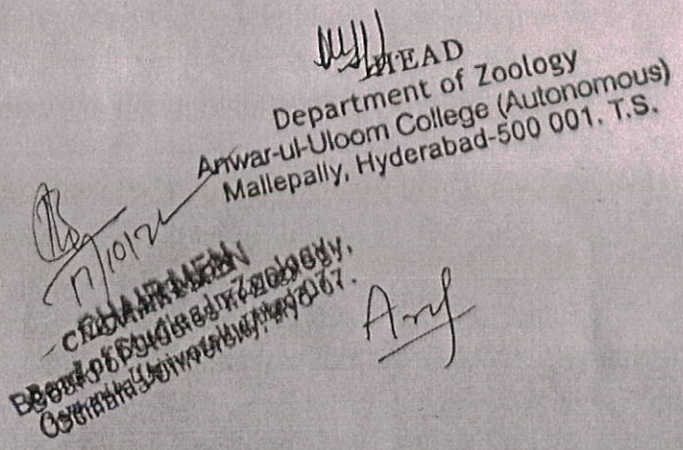 HEAD
Department of Zoology
Anwar-ul-Uloom College (Autonomous)
Mallepally, Hyderabad-500 001. T.S.
17/10/21
CHAIRMAN
Board of Studies in Zoology,
Osmania University, Hyd-07.